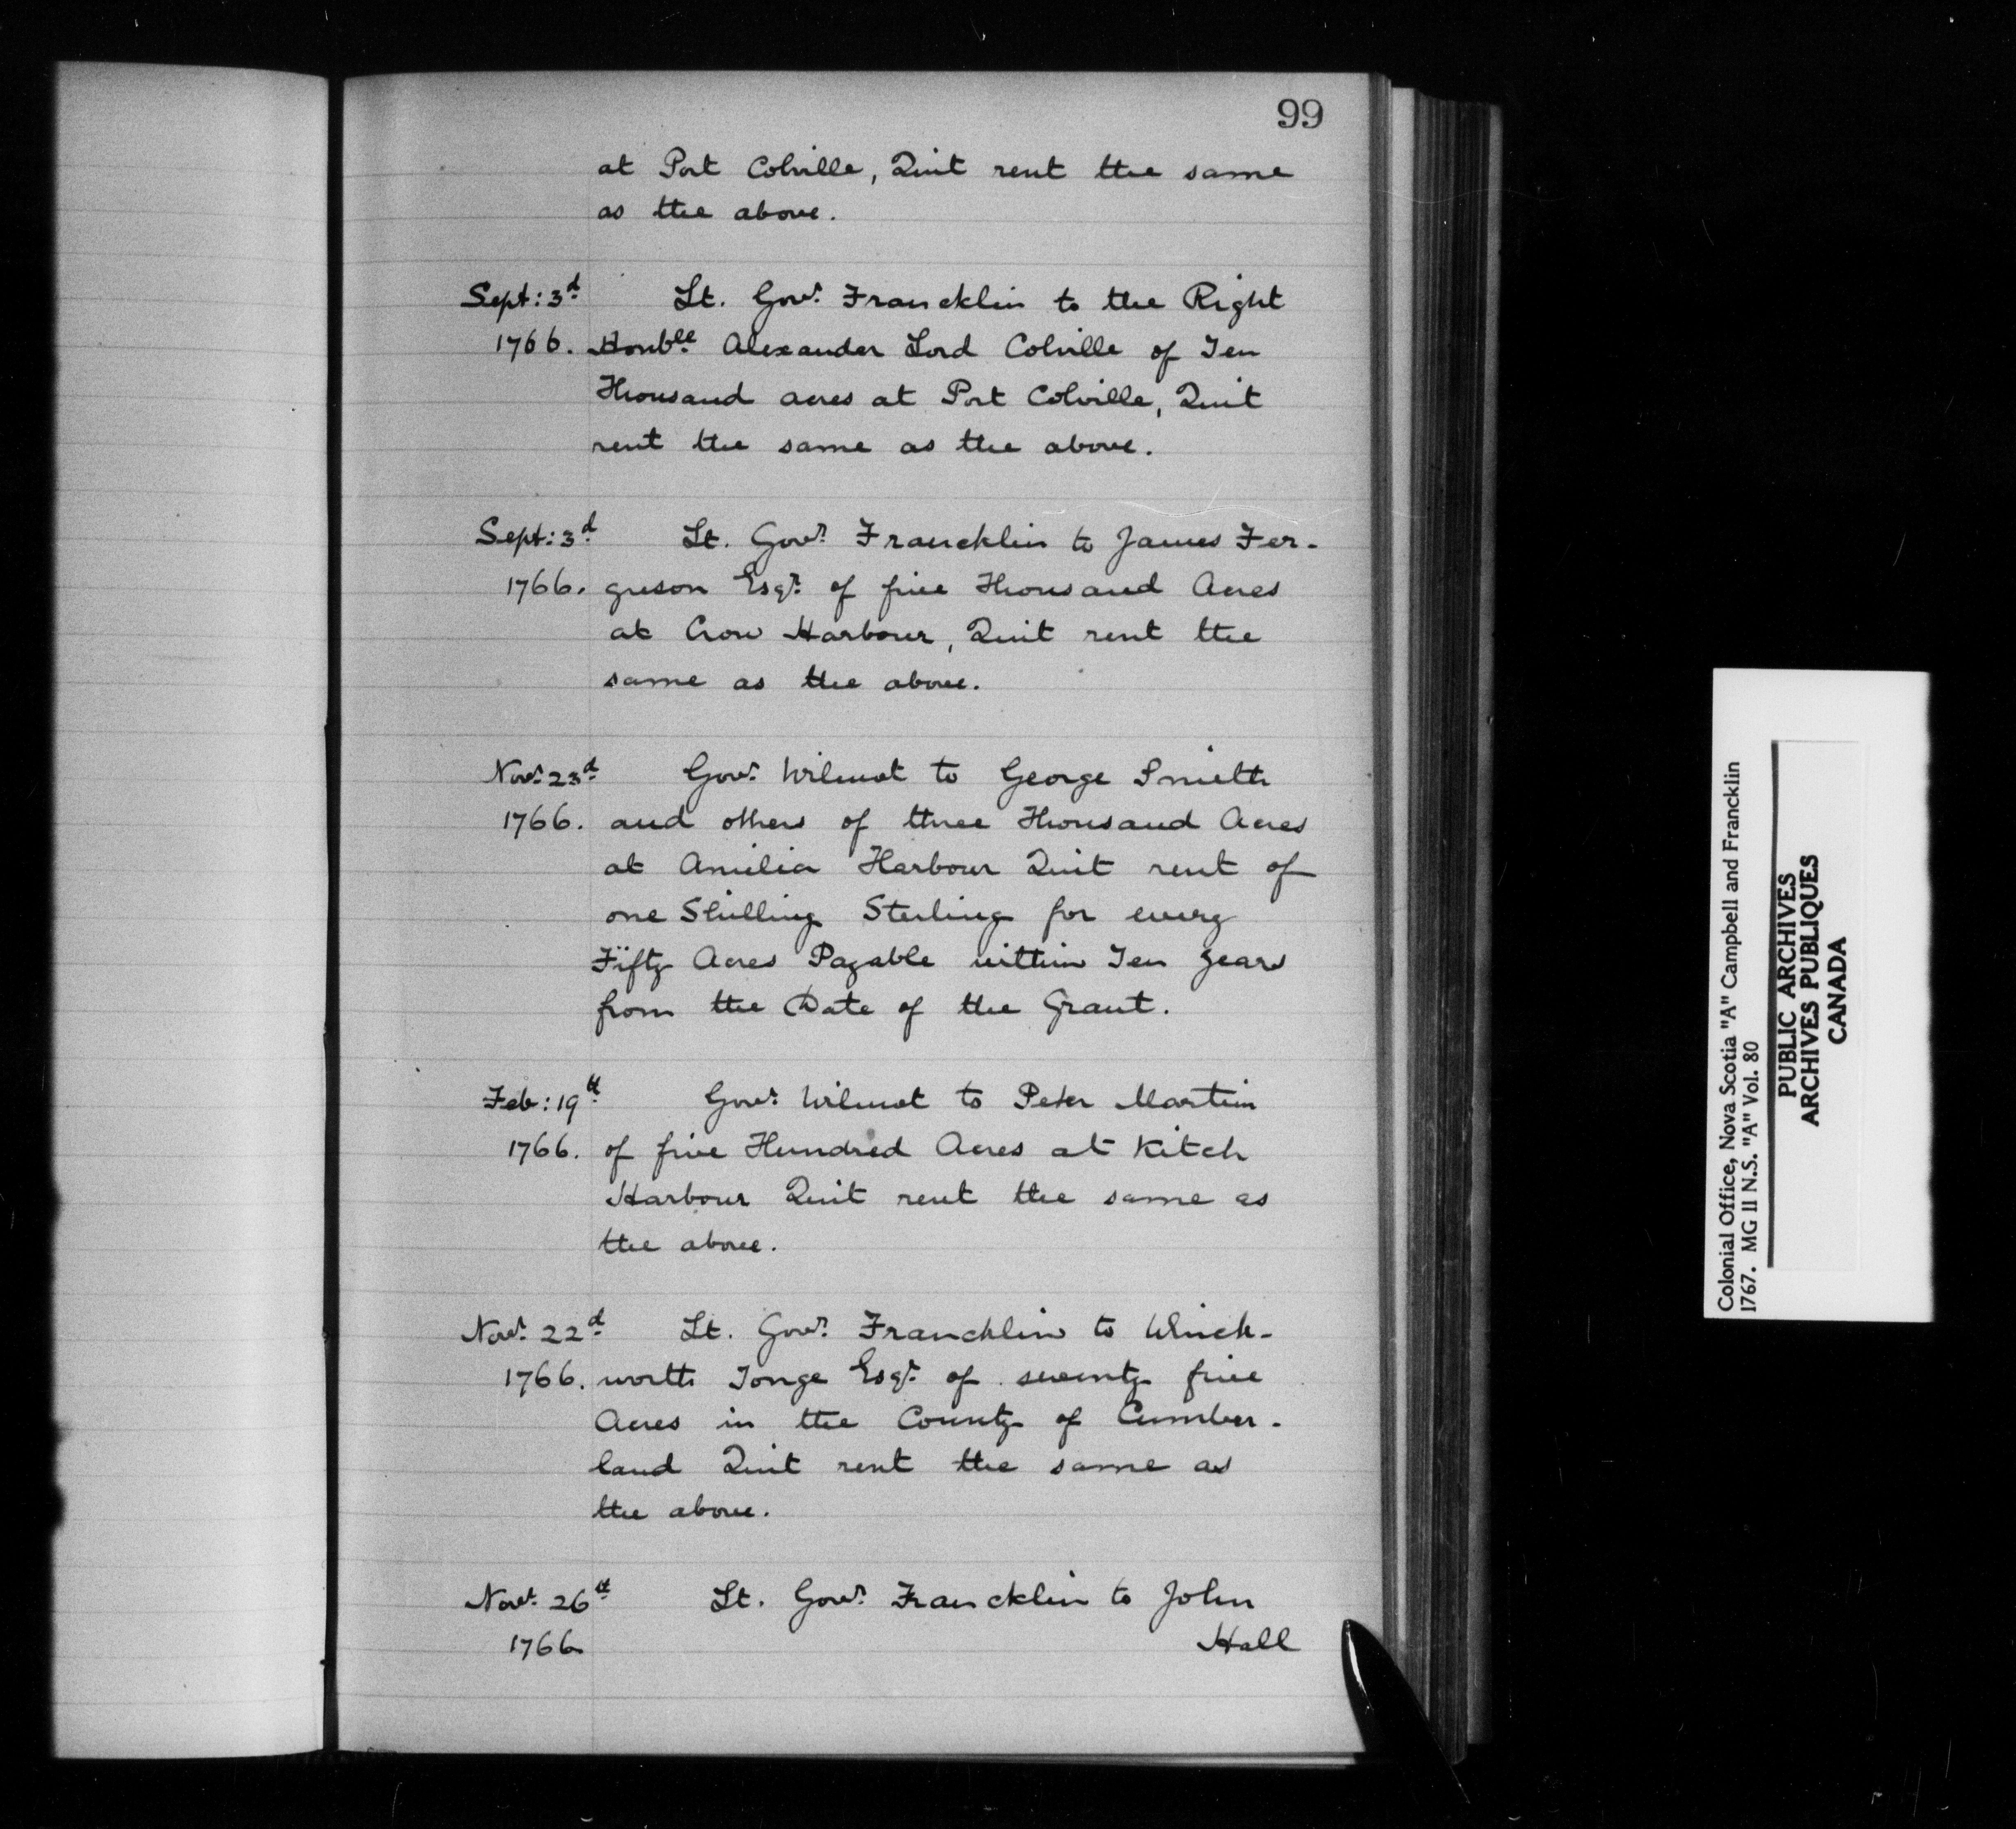 99
at Port Colville, Quit rent the same
as the above.
Sept: 3d Lt. Govr. Francklin to the Right
1766. Honble. Alexander Lord Colville of Ten
Thousand acres at Port Colville, Quit
rent the same as the above.
Sept: 3d Lt. Govr. Francklin to James Fer-
1766. guson Esqr. of five Thousand Acres
at Crow Harbour, Quit rent the
same as the above.
Novr. 23d Govr. Wilmot to George Smith
1766. and others of three Thousand Acres
at Amilia Harbour Quit rent of
one Shilling Sterling for every
Fifty Acres Payable within Ten years
from the Date of the Grant.
Feb: 19th Govr. Wilmot to Peter Martin
1766. of five Hundred Acres at Kitch
Harbour Quit rent the same as
the above.
Novr. 22d Lt. Govr. Francklin to Winck-
1766. worth Tonge Esqr. of seventy five
Acres in the County of Cumber-
land Quit rent the same as
the above.
Novr. 26th Lt. Govr. Francklin to John
1766 Hall
Colonial Office, Nova Scotia "A" Campbell and Francklin
1767. MG II N.S. "A" Vol. 80
PUBLIC ARCHIVES
ARCHIVES PUBLIQUES
CANADA